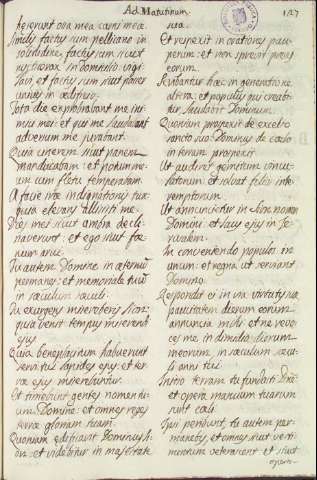 Ad Matutinum
127
heserunt ossa mea carni meæ.
Similis factus sum pellicano in
solitudine: factus sum sicut
nycticorax in domicilio. vigi-
lavi et factus sum sicut passer
unicus in ædificio.
Tota die exprobrabant me ini-
mici mei: et qui me laudabant
adversum me jurabant.
Quia cinerem sicut panem
manducabam: et potum me-
um cum fletu temperabam.
A facie iræ indignationis tuæ
quia elevans allisisti me.
Dies mei sicut umbra decli-
naverunt: et ego sicut fæ-
num arui.
Tu autem Domine in æternū
permanes: et memoriale tuū
in sæculum sæculi.
Tu exurgens misereberis Sion:
quia venit tempus miserendi
ejus
Quia beneplacitum habuerunt
servi tui lapides ejus: et ter-
ræ ejus miserebuntur.
Et timebunt gentes nomen tu-
um Domine: et omnes reges
terræ gloriam tuam.
Quoniam edificavit Dominus Si-
on: et videbitur in majestate
sua.
Et respexit in orationes pau-
perum: et non sprevit preces
eorum.
Scribantur hæc in generatione
altera: et populus qui creabi-
tur laudabit Dominum.
Quoniam prospexit de excelso
sancto suo: Dominus de cœlo
in terram prospexit.
Ut audiret gemitum conpe-
ditorum: et solvat filios inte-
remptorum.
Ut annuncietur in Sion nomen
Domini: et laus ejus in Je-
rusalem.
In conveniendo populos in
unum: et regna ut serviant
Domino.
Respondit ei in via virtutis suæ
paucitatem dierum eorum
annuncia mihi: et ne revo-
ces me in dimidio dierum
meorum in sæculum sæcu-
li anni tui.
Initio terram tu fundasti Dñe:
et opera manuum tuarum
sunt cœli.
Ipsi peribunt, tu autem per-
manes, et omnes sicut vesti-
mentum veterascent et sicut
opera-